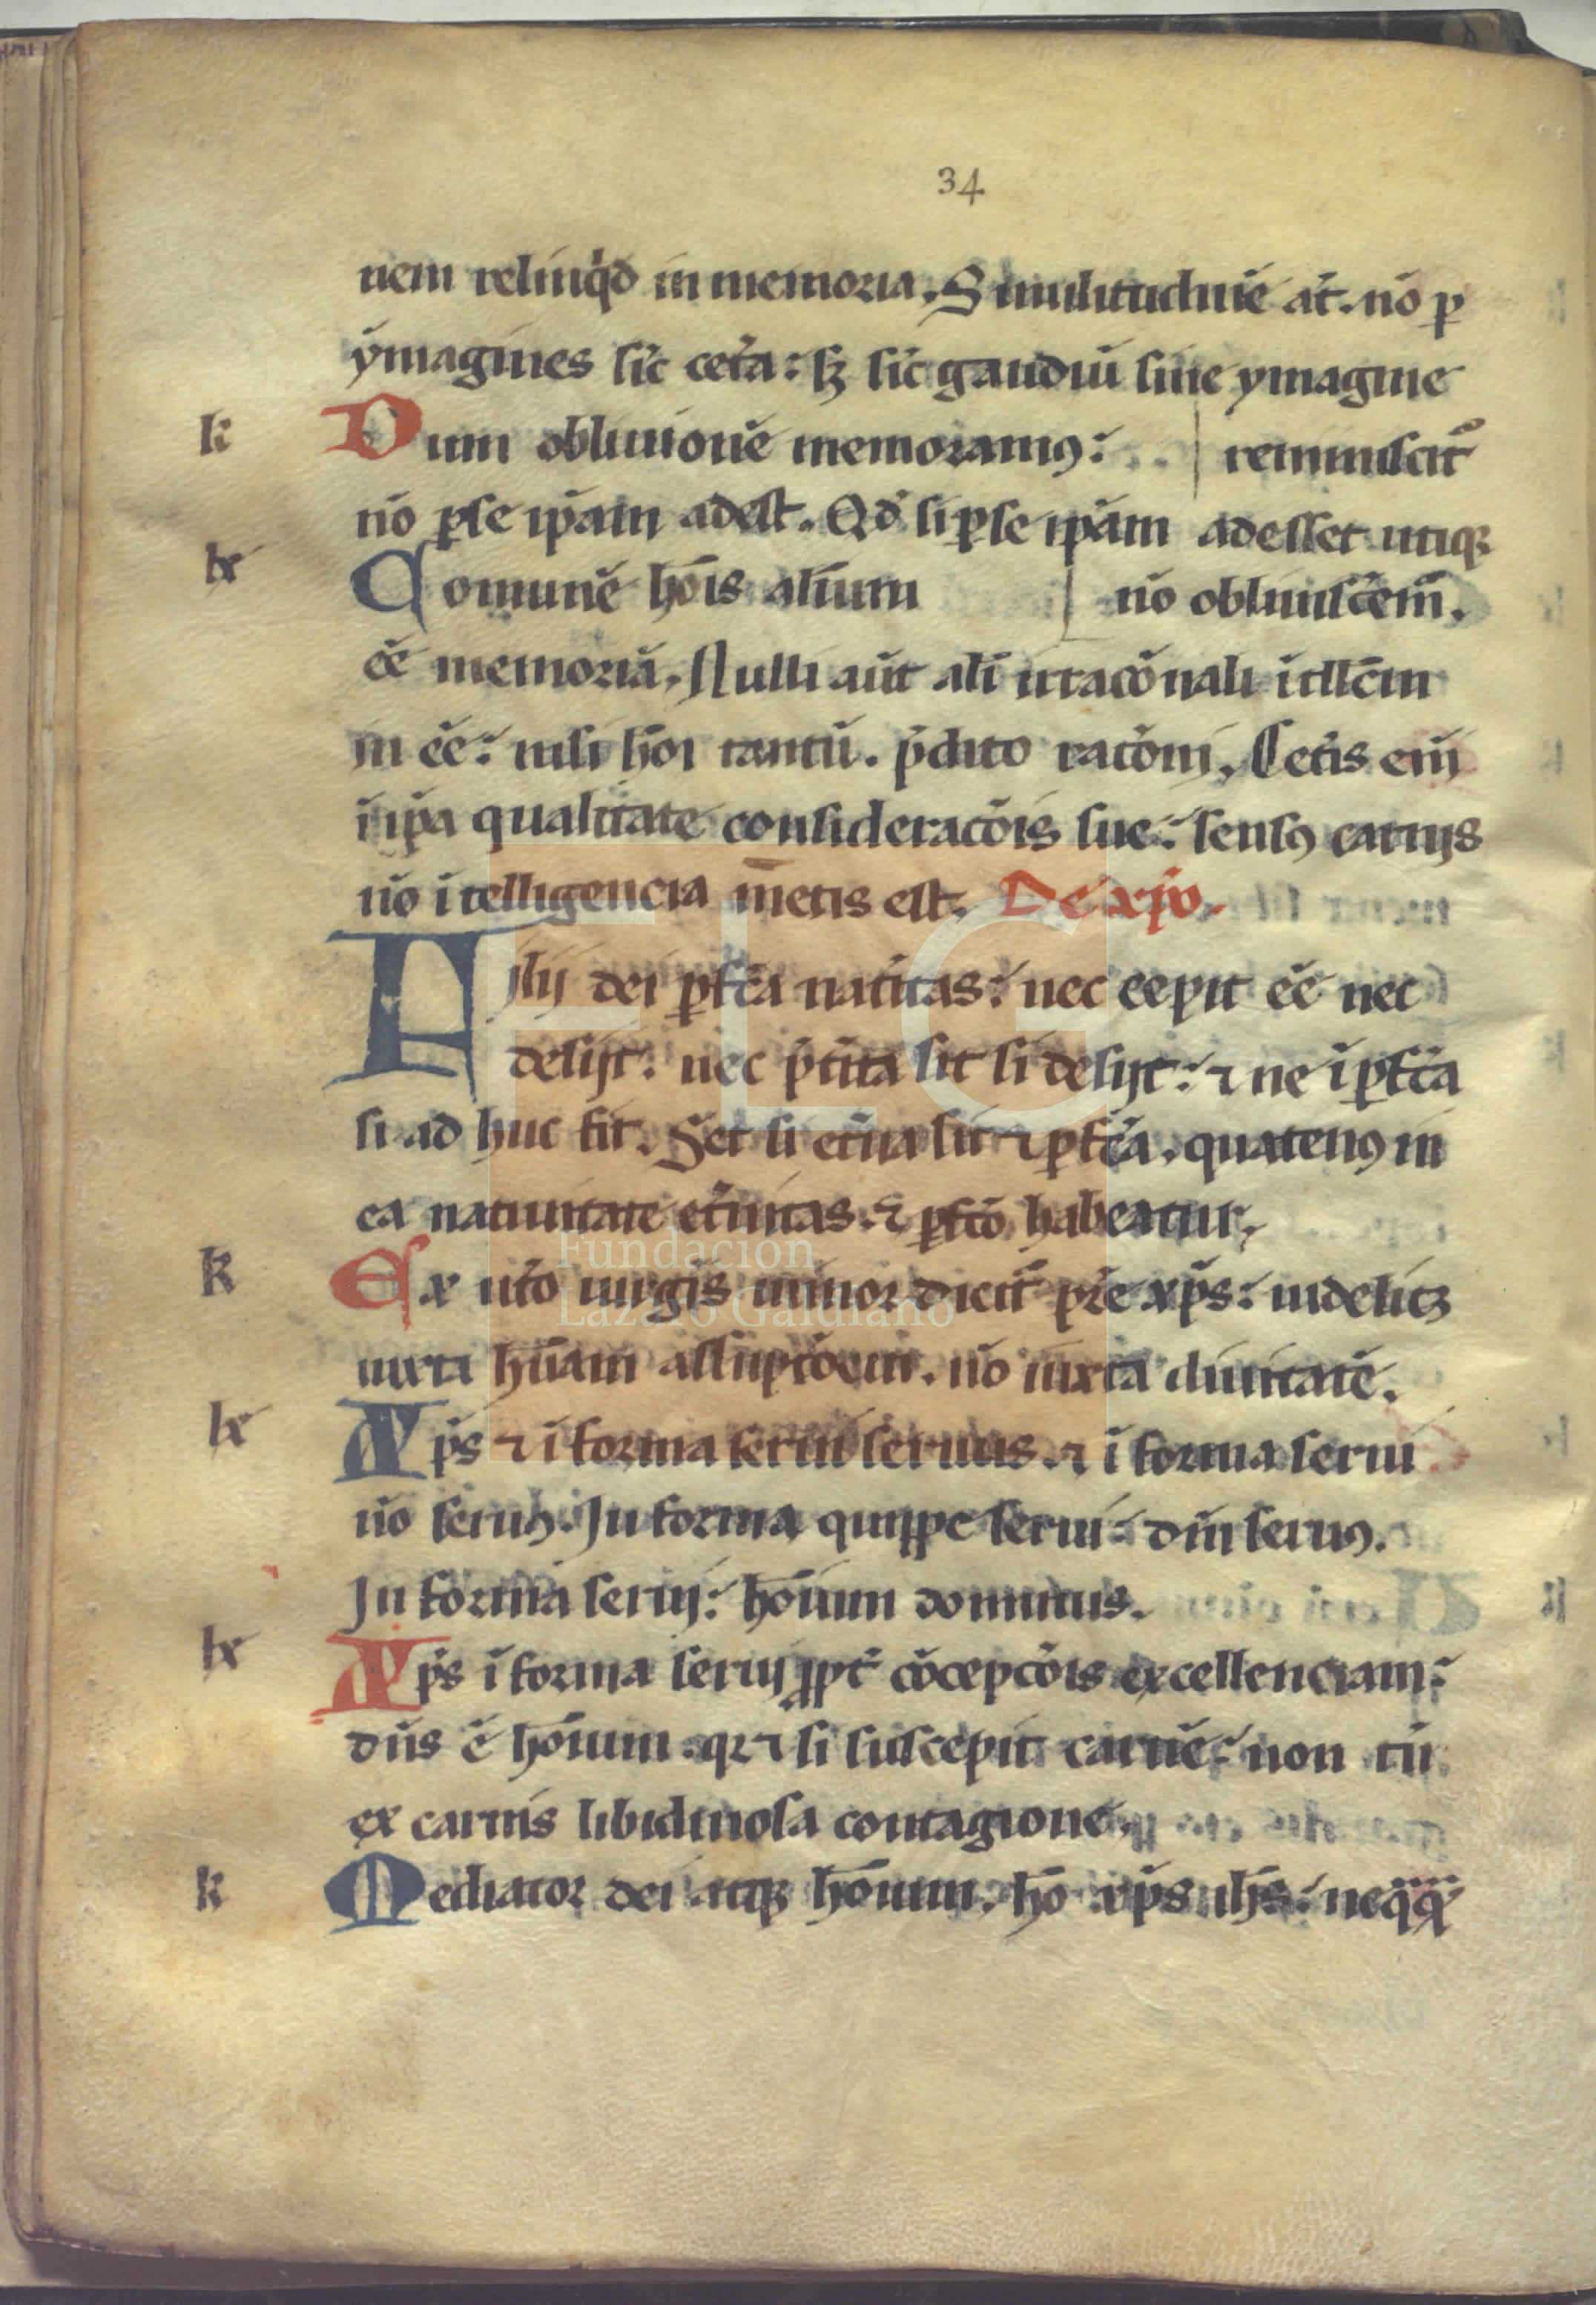 34
nem relinq̇d in memoria. Similitudinē aт̄. nō ꝑ
ymagines sic̄ cet̄a: sꝫ sic̄ gaudiū sine ymagine
k Dum obliuionē memoramꝰ: reminiscit᷑
nō ꝑ se ip̄am adest. Qd̄ si ꝑ se ip̄am adesset utiqꝫ
k Comunē hōis alium nō obliuiscēm̄.
eē memoriā. Nulli aūt ali irracōnali itllēm
in eē: nisi hōi tantū. p̄dito racōni. Cet̄is enī
ī ip̄a qualitate consideracōis sue: sensꝰ carnis
nō ītelligencia mētis est. De xp̄o.
Filij dei ꝑfc̄a natītas: nec cepit eē nec
desijt: nec p̄tīta sit si desijt: ⁊ ne īꝑfc̄a
si ad huc fit. Set si et̄na sit ⁊ ꝑfc̄a. quatenꝰ in
ea natiuitate et̄nitas. ⁊ ꝑfcō habeatur.
k Ex ut̄o uirgīs minor dicit᷑ pr̄e xp̄s: uidelicꝫ
iuxta hūam assūpcōem. nō iuxta diuītatē.
k Xp̄s ⁊ ī forma serui seruus. ⁊ ī forma serui
nō seruꝰ. In forma quippe serui: dn̄i seruꝰ.
In forma seruj: hōium dominus.
k Xp̄s ī forma seruj ꝓpt̄ cōcepcōis excellenciam:
dn̄s ē hōium. qr ⁊ si suscepit carnē: non tn̄
ex carnis libidinosa contagione.
k Mediator dei atqꝫ hōium. hō xp̄s ih̄s: neq̄q̄
FLG
Fundación
Lázaro Galdiano